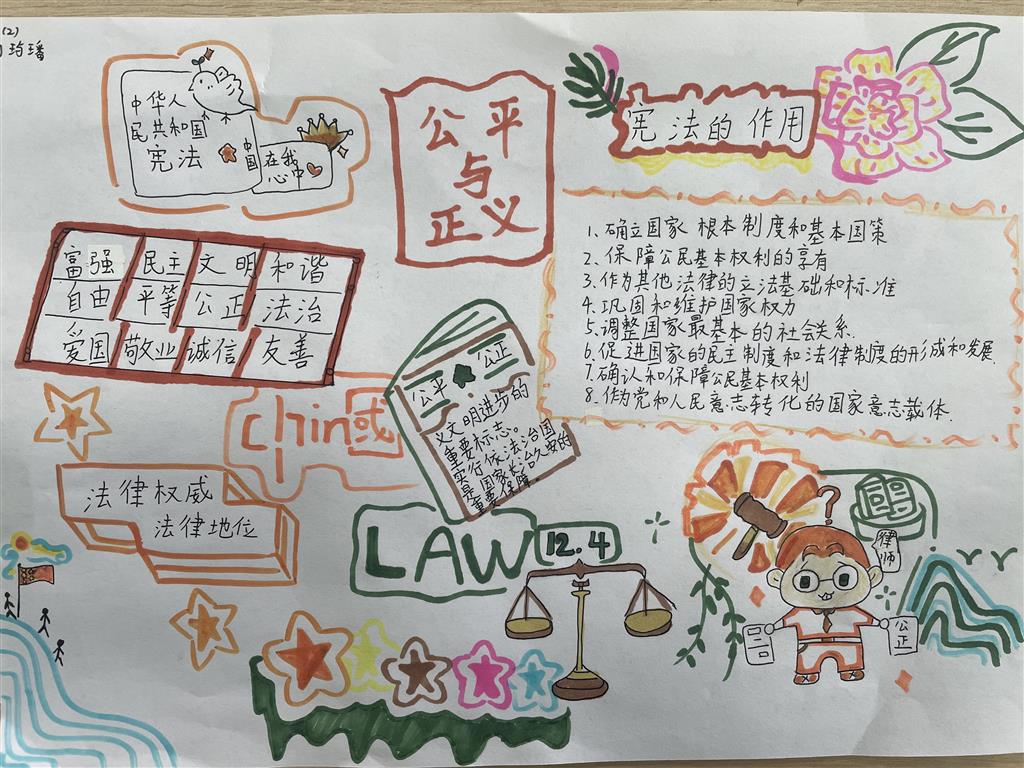 (2)
中华人
民共和国
宪法
中国
在我
心中
公平
与
正义
宪法的作用
富强 民主 文明 和谐
自由 平等 公正 法治
爱国 敬业 诚信 友善
1、确立国家根本制度和基本国策
2、保障公民基本权利的享有
3、作为其他法律的立法基础和标准
4、巩固和维护国家权力
5、调整国家最基本的社会关系
6、促进国家的民主制度和法律制度的形成和发展
7、确认和保障公民基本权利
8、作为党和人民意志转化的国家意志载体
chin國
公平 公正
文明进步的
重要标志。
实行依法治国
是国家长治久安的
重要保障。
法律权威
法律地位
LAW
12.4
?
律师
公正